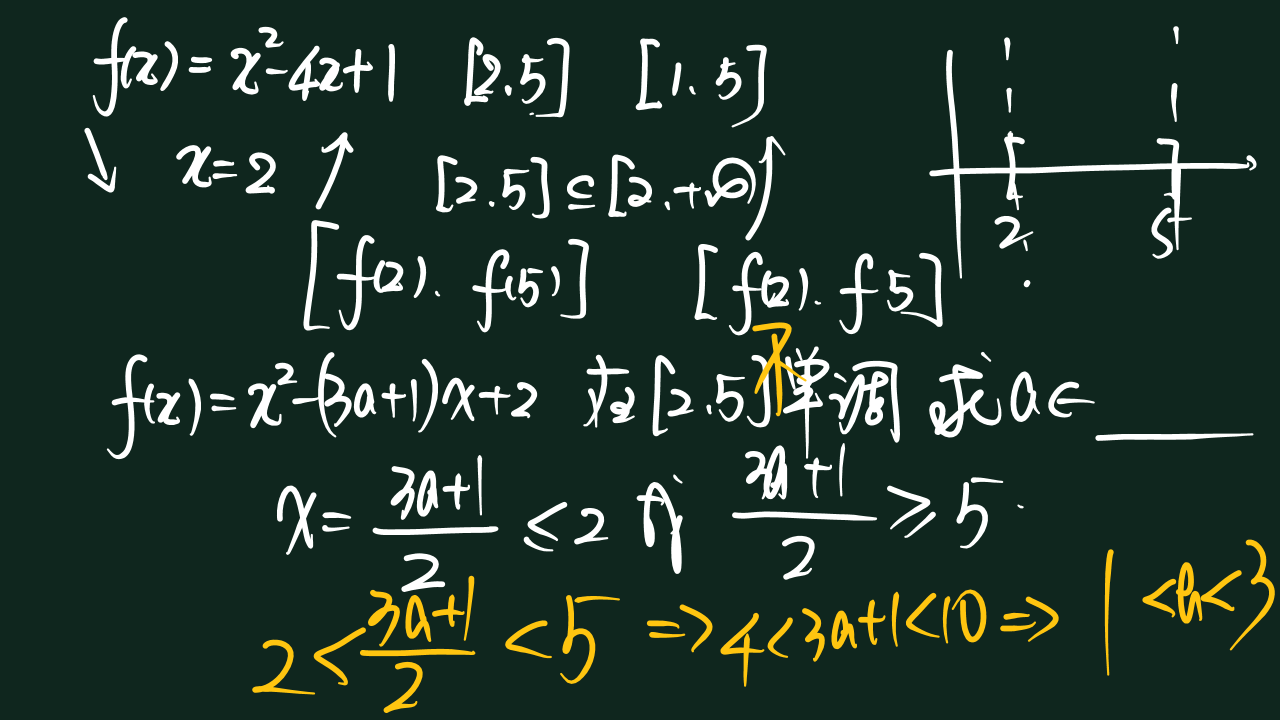 f(x)=x²-4x+1 [2.5] [1.5]
x=2 [2.5]⊆[2.+∞)
[f(2).f(5)] [f(2).f5]
2 5
f(x)=x²-(3a+1)x+2 在[2.5]不单调 求a∈____
x=\frac{3a+1}{2}≤2 或 \frac{3a+1}{2}≥5
2<\frac{3a+1}{2}<5 ⇒ 4<3a+1<10 ⇒ 1<a<3